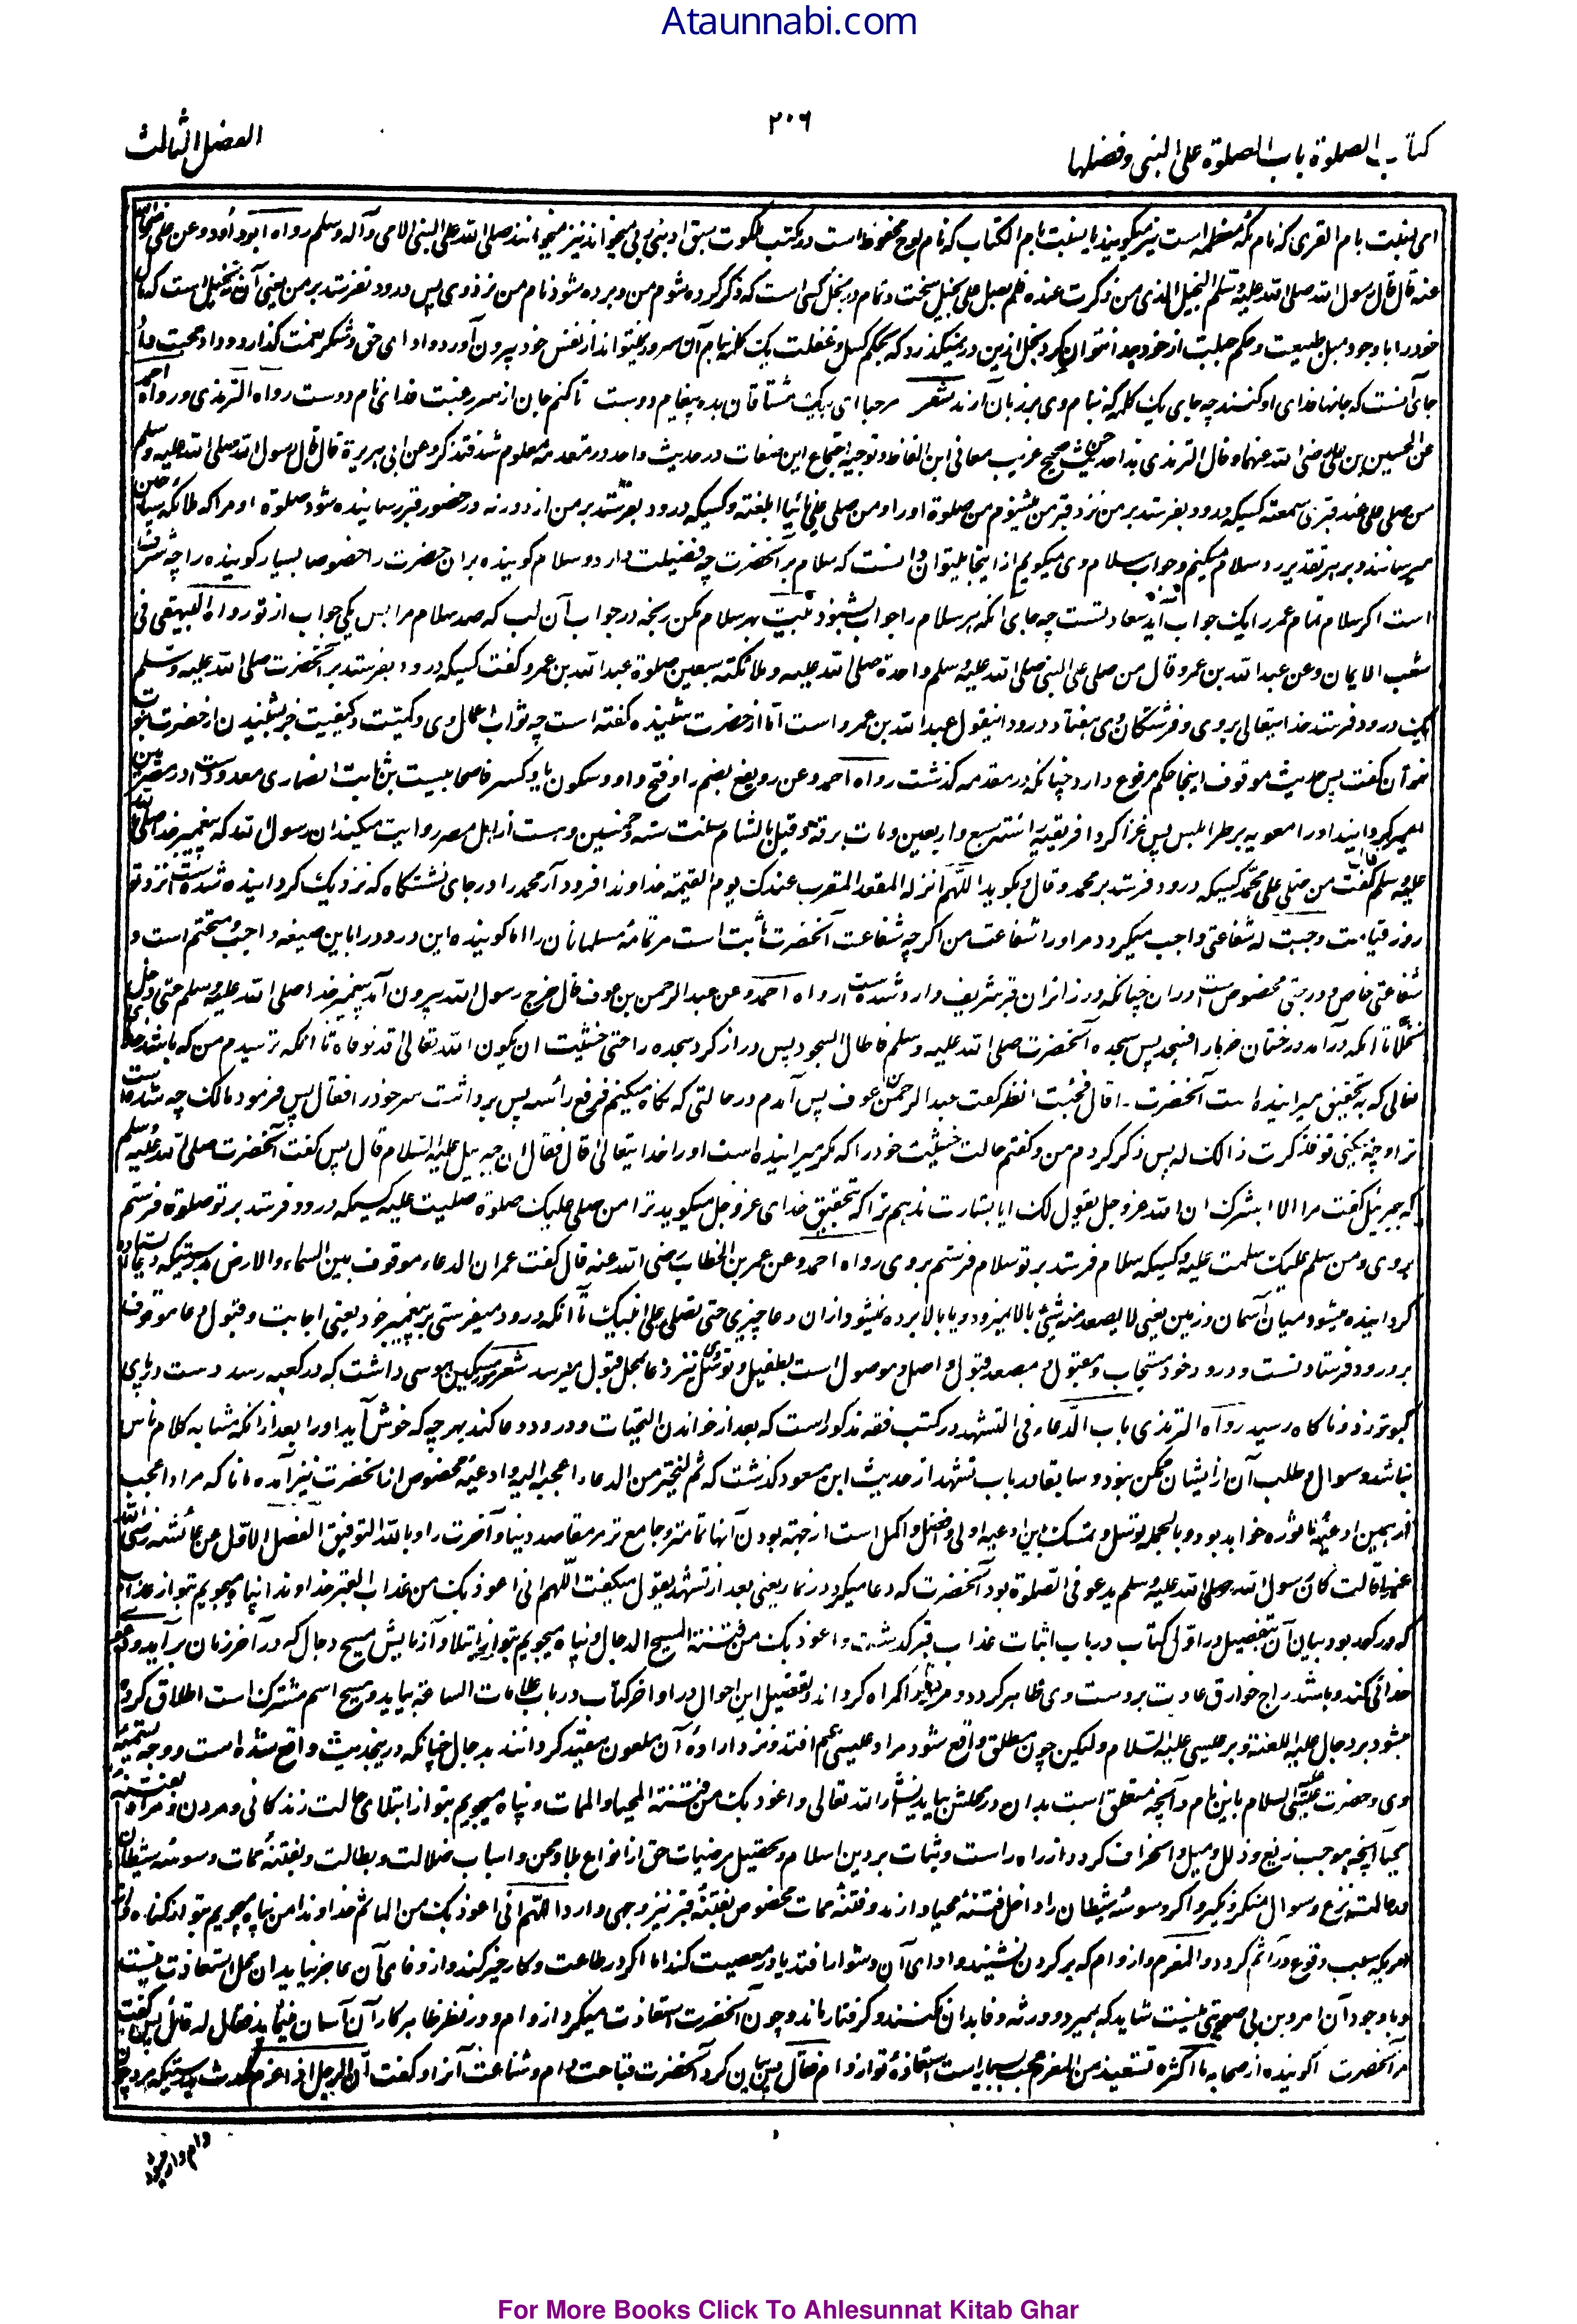 Ataunnabi.com
كتاب الصلوة باب الصلوة على النبي وفضلها
۲۰۶
الفصل الثالث
امی نسبت بام القری که نام مکه معظمه است نیز میگویند یا نسبت بام الکتاب که نام لوح محفوظ است در مکتب ملکوت سبق او بی وی نیز میخوانند صلی الله علی النبی الامی وآله وسلم رواه ابوداود وعن علی رضی الله
عنه قال قال رسول الله صلی الله علیه وسلم البخیل الذی من ذکرت عنده فلم یصل علی بخیل سخت و تمام در بخل کسی است که ذکر کرده شوم من و برده شود نام من نزد وی پس درود نفرستد بر من یعنی آن بخیل است که مال
خود را با وجود میل طبیعت و حکم جبلت از خود جدا نتوان کرد بخل ازین در نمیگذرد که بحکم کسل و غفلت یک کلمه بنام آن سرور نمیتواند از نفس خود بیرون آورد و ادای حق و شکر نعمت گذارد و داد محبت
جای آنست که جانها فدای او کنند چه جای یک کلمه که بنام وی بر زبان آرند شعر مرحبا ای پیک مشتاقان بده پیغام دوست تا کنم جان از سر رغبت فدای نام دوست رواه الترمذی ورواه احمد
عن الحسین بن علی رضی الله عنهما وقال الترمذی هذا حدیث حسن صحیح غریب معانی این الفاظ و توجیه اجتماع این صفات در حدیث واحد در مقدمه معلوم شد فتذکر وعن ابی هریرة قال قال رسول الله صلی الله علیه وسلم
من صلی علی عند قبری سمعته کسیکه درود بفرستد بر من نزد قبر من میشنوم من صلوة او را ومن صلی علی نائیا ابلغته و کسیکه درود بفرستد بر من از دور نه در حضور قبر رسانیده میشود صلوة او مرا که ملائکه سیاحین
میرسانند و بر هر تقدیر رد سلام میکنم و جواب سلام وی میگویم از اینجا میتوان دانست که سلام بر آنحضرت چه فضیلت دارد و سلام گوینده بر آن حضرت را خصوصا بسیار گوینده را چه شرف
است اگر سلام تمام عمر را یک جواب آید سعادتست چه جای آنکه هر سلام را جواب بشنود بیت بهر سلام مکن رنجه در جواب آن لب که صد سلام مرا بس یکی جواب از تو رواه البیهقی فی
شعب الایمان وعن عبد الله بن عمرو قال من صلی علی النبی صلی الله علیه وسلم واحدة صلی الله علیه وملائکته سبعین صلوة عبد الله بن عمرو گفت کسیکه درود بفرستد بر آنحضرت صلی الله علیه وسلم
یک درود فرستد خدایتعالی بر وی و فرشتگان وی هفتاد درود این قول عبد الله بن عمرو است اما از حضرت شنیده گفته است چه ثواب اعمال وی و کمیت و کیفیت جز بشنیدن از حضرت نبوت
نتوان گفت پس حدیث موقوف اینجا حکم مرفوع دارد چنانکه در مقدمه گذشت رواه احمد وعن رویفع بضم را و فتح واو و سکون یا و کسر فا صحابیست بن ثابت انصاری معدودست در مصریین
امیر گردانید او را معویه بر طرابلس پس غزا کرد افریقیه را سنة سبع واربعین ومات ببرقة وقیل بالشام سنة ست وخمسین وهست از اهل مصر روایت میکند ان رسول الله که پیغمبر خدا صلی الله
علیه وسلم گفت من صلی علی محمد کسیکه درود فرستد بر محمد وقال و بگوید اللهم انزله المقعد المقرب عندک یوم القیمة خداوندا فرود آر محمد را در جای نشستگاه که نزدیک گردانیده شده است نزد تو
روز قیامت وجبت له شفاعتی واجب میگردد مر او را شفاعت من اگر چه شفاعت آنحضرت ثابت است مر تمامه مسلمانان را اما گوینده این درود را باین صیغه واجب و متحتم است و
شفاعتی خاص و رتبتی مخصوص است او را چنانکه در زائران قبر شریف وارد شده است رواه احمد وعن عبد الرحمن بن عوف قال خرج رسول الله بیرون آمد پیغمبر خدا صلی الله علیه وسلم حتی دخل
نخلا تا آنکه درآمد درختان خرما را فسجد پس سجده کرد آنحضرت صلی الله علیه وسلم فاطال السجود پس دراز کرد سجده را حتی خشیت ان یکون الله تعالی قد توفاه تا آنکه ترسیدم من که باشد خدای
تعالی که به تحقیق میرانیده است آنحضرت را قال فجئت انظر گفت عبد الرحمن عوف پس آمدم در حالتی که نگاه میکنم فرفع رأسه پس برداشت سر خود را فقال پس فرمود مالک چه شده است
ترا و چه میبینی تو فذکرت ذالک له پس ذکر کردم من و گفتم حالت خشیت خود را که مگر میرانیده است او را خدایتعالی قال فقال ان جبریل علیه السلام قال لی پس گفت آنحضرت صلی الله علیه وسلم
که جبرئیل گفت مرا الا ابشرک ان الله عز وجل یقول لک آیا بشارت ندهم ترا که تحقیق خدای عز وجل میگوید ترا من صلی علیک صلوة صلیت علیه کسیکه درود فرستد بر تو صلوة فرستم
بر وی ومن سلم علیک سلمت علیه و کسیکه سلام فرستد بر تو سلام فرستم بر وی رواه احمد وعن عمر بن الخطاب رضی الله عنه قال گفت عمر ان الدعاء موقوف بین السماء والارض بدرستیکه دعا ایستاده
گردانیده میشود میان آسمان و زمین یعنی لا یصعد منه شیئ بالا نمیرود و یا بالا برده نمیشود از آن دعا چیزی حتی تصلی علی نبیک تا آنکه درود میفرستی بر پیغمبر خود یعنی اجابت و قبول دعا موقوف
بر درود فرستادنست و درود خود مستجاب و مقبول و مصعد قبول و اصل و موصول است بطفیل و توسل وی نیز دعا بمحل قبول میرسد شعر مور مسکین هوسی داشت که در کعبه رسد دست در پای
کبوتر زد و ناگاه رسید رواه الترمذی باب الدعاء فی التشهد در کتب فقه مذکور است که بعد از خواندن التحیات و درود دعا کند بهر چه که خوش آید او را بعد از آنکه مشابه کلام ناس
نباشد و سوال و طلب آن از ایشان ممکن نبود و سابقا در باب تشهد از حدیث ابن مسعود گذشت که ثم لیتخیر من الدعاء اعجبه الیه و ادعیه مخصوص از آنحضرت نیز آمده مانا که مراد اعجب
از همین ادعیه ماثوره خواهد بود و بالجمله توسل و تمسک باین ادعیه اولی و افضل و اکمل است از جهته بودن آنها تمامتر و جامع تر مر مقاصد دنیا و آخرت را و بالله التوفیق الفصل الاول عن عائشه رضی الله
عنها قالت کان رسول الله صلی الله علیه وسلم یدعو فی الصلوة بود آنحضرت که دعا میکرد در نماز یعنی بعد از تشهد یقول میگفت اللهم انی اعوذ بک من عذاب القبر خداوندا پناه میجویم بتو از عذاب
که در گور بود بیان آن بتفصیل در اول کتاب در باب اثبات عذاب قبر گذشت واعوذ بک من فتنة المسیح الدجال و پناه میجویم بتو از ابتلا و آزمایش مسیح دجال که در آخر زمان برآید و دعوی
خدائی کند و باستدراج خوارق عادت بر دست وی ظاهر گردد و مردم را گمراه گرداند و تفصیل این احوال در اواخر کتاب در باب علامات الساعة بیاید و مسیح اسم مشترک است اطلاق کرده
میشود بر دجال علیه اللعنة و بر عیسی علیه السلام ولیکن چون مطلق واقع شود مراد عیسی علیه السلام افتد و نزد اراده آن ملعون مقید گردانند بدجال چنانکه درین حدیث واقع شده است و وجه تسمیه
وی و حضرت عیسی علیه السلام باین نام و آنچه متعلق است بدان در محلش بیاید انشاء الله تعالی واعوذ بک من فتنة المحیا والممات و پناه میجویم بتو از ابتلای حالت زندگانی و مردن و مراد بفتنه
محیا آنچه موجب زیغ و زلل و میل و انحراف گردد از راه راست و ثبات بر دین اسلام و تحصیل مرضیات حق از انواع بلا و محن و اسباب ضلالت و بطالت و بفتنه ممات وسوسه شیطان
در حالت نزع و سوال منکر و نکیر و اگر وسوسه شیطان را داخل فتنه محیا دارند و فتنه ممات مخصوص بفتنه قبر نیز وجهی دارد اللهم انی اعوذ بک من الماثم خداوندا من پناه میجویم بتو از گناه
هر چه سبب وقوع در اثم گردد والمغرم و از وام که بر گردن نشیند و ادای آن دشوار افتد یا در معصیت کند اما اگر در طاعت و کار خیر کند و از وفای آن عاجز نیاید آن محل استعاذت نیست
و با وجود آن امر دین بی صعوبتی نیست شاید که بمیرد و ورثه وفا بدان نکنند و گرفتار ماند و چون آنحضرت استعاذت میکرد از وام و در نظر ظاهر کار آن آسان مینماید فقال له قائل پس گفت
مر آنحضرت را گوینده از صحابه ما اکثر ما تستعیذ من المغرم عجب بسیار است استعاذه تو از وام فقال پس بیان کرد آنحضرت قباحت وام و شناعت آنرا و گفت ان الرجل اذا غرم حدث بدرستیکه مرد چون
وام دار میشود
For More Books Click To Ahlesunnat Kitab Ghar